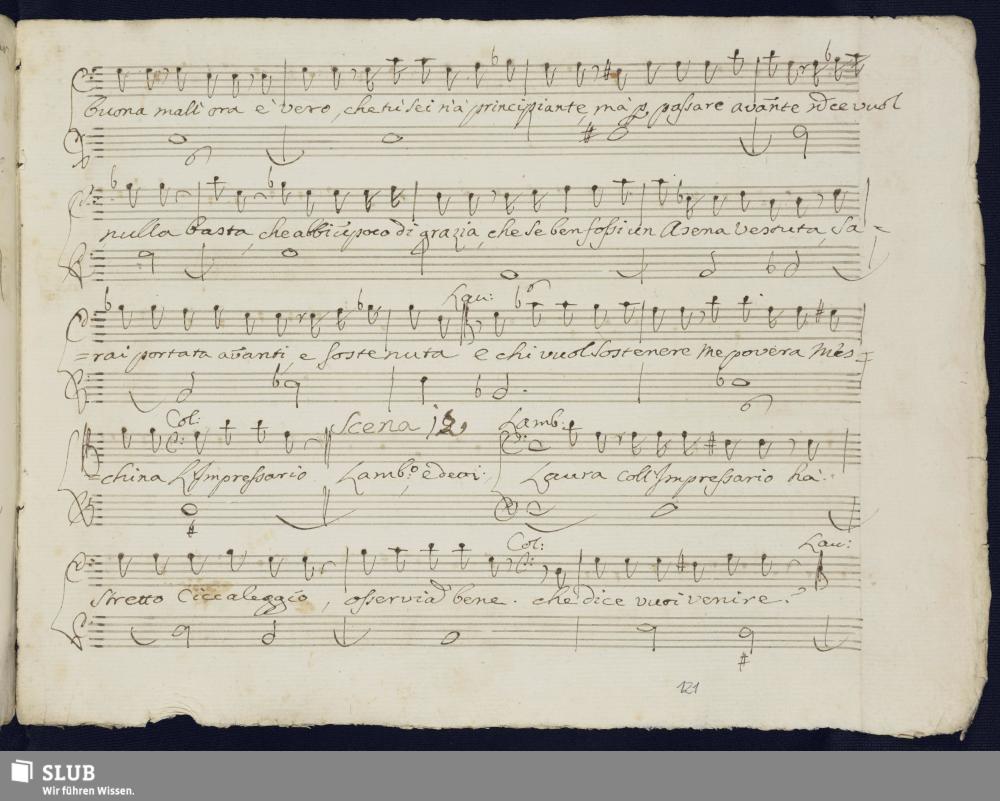 buona mall' ora è vero, che tu sei n'a' principiante, mà p passare avante nce vuol
nulla basta, che abbi ipoco di grazia, che se ben fossi un Asena vestuta, Sa=
Lau:
=rai portata avanti e sostenuta e chi vuol sostenere me povera Mes=
Col: Scena 12 Lamb:
=china L'Impressario Lamb.º, e deoi: Laura coll'Impressario hà
Col: Lau:
stretto Ciccaleggio, osserviā bene. che dice vuoi venire?
121
SLUB
Wir führen Wissen.